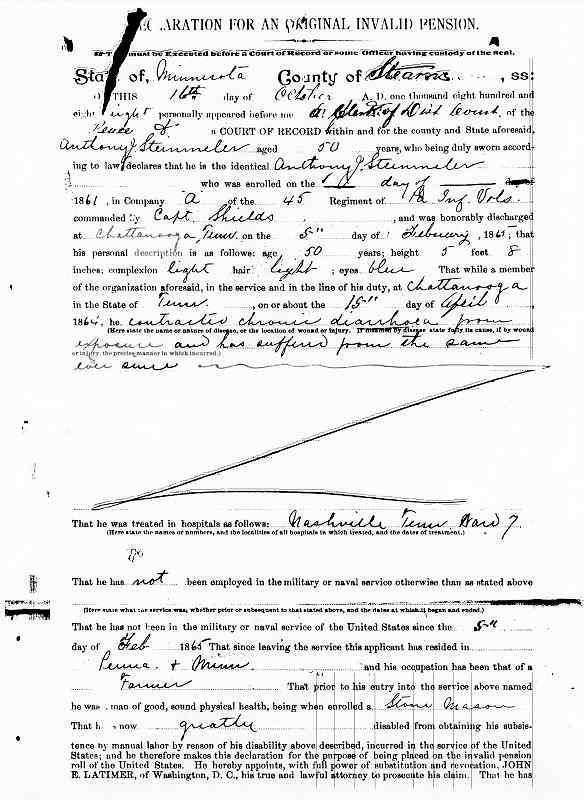 ARATION FOR AN ORIGINAL INVALID PENSION.
must be Executed before a Court of Record or some Officer having custody of the Seal.
State of, Minnesota County of Stearns, ss:
THIS 16th day of October A. D. one thousand eight hundred and
eight personally appeared before me a Clerk of Dist Court of the
a COURT OF RECORD within and for the county and State aforesaid,
Anthony J. Stemmeler aged 50 years, who being duly sworn accord-
ing to law, declares that he is the identical Anthony J. Stemmeler
who was enrolled on the day of
1861, in Company A of the 45 Regiment of Pa Inf. Vols.
commanded by Capt. Shields, and was honorably discharged
at Chattanooga, Tenn on the 5" day of February, 1865; that
his personal description is as follows: age, 50 years; height 5 feet 8
inches; complexion light hair light; eyes blue That while a member
of the organization aforesaid, in the service and in the line of his duty, at Chattanooga
in the State of Tenn., on or about the 15" day of April,
1864, he contracted chronic diarrhoea from
(Here state the nature of disease, or the location of wound or injury. If disabled by disease state fully its cause, if by wound
exposure and has suffered from the same
or injury, the precise manner in which incurred.)
ever since
That he was treated in hospitals as follows: Nashville Tenn Ward 7.
(Here state the names or numbers, and the localities of all hospitals in which treated, and the dates of treatment.)
That he has not been employed in the military or naval service otherwise than as stated above
(Here state what the service was, whether prior or subsequent to that stated above, and the dates at which it began and ended.)
That he has not been in the military or naval service of the United States since the 5"
day of Feb 1865 That since leaving the service this applicant has resided in
Penna. & Minn. and his occupation has been that of a
Farmer That prior to his entry into the service above named
he was man of good, sound physical health, being when enrolled a Stone Mason
That h s now greatly disabled from obtaining his subsis-
tence by manual labor by reason of his disability above described, incurred in the service of the United
States; and he therefore makes this declaration for the purpose of being placed on the invalid pension
roll of the United States. He hereby appoints, with full power of substitution and revocation, JOHN
E. LATIMER, of Washington, D. C., his true and lawful attorney to prosecute his claim. That he has